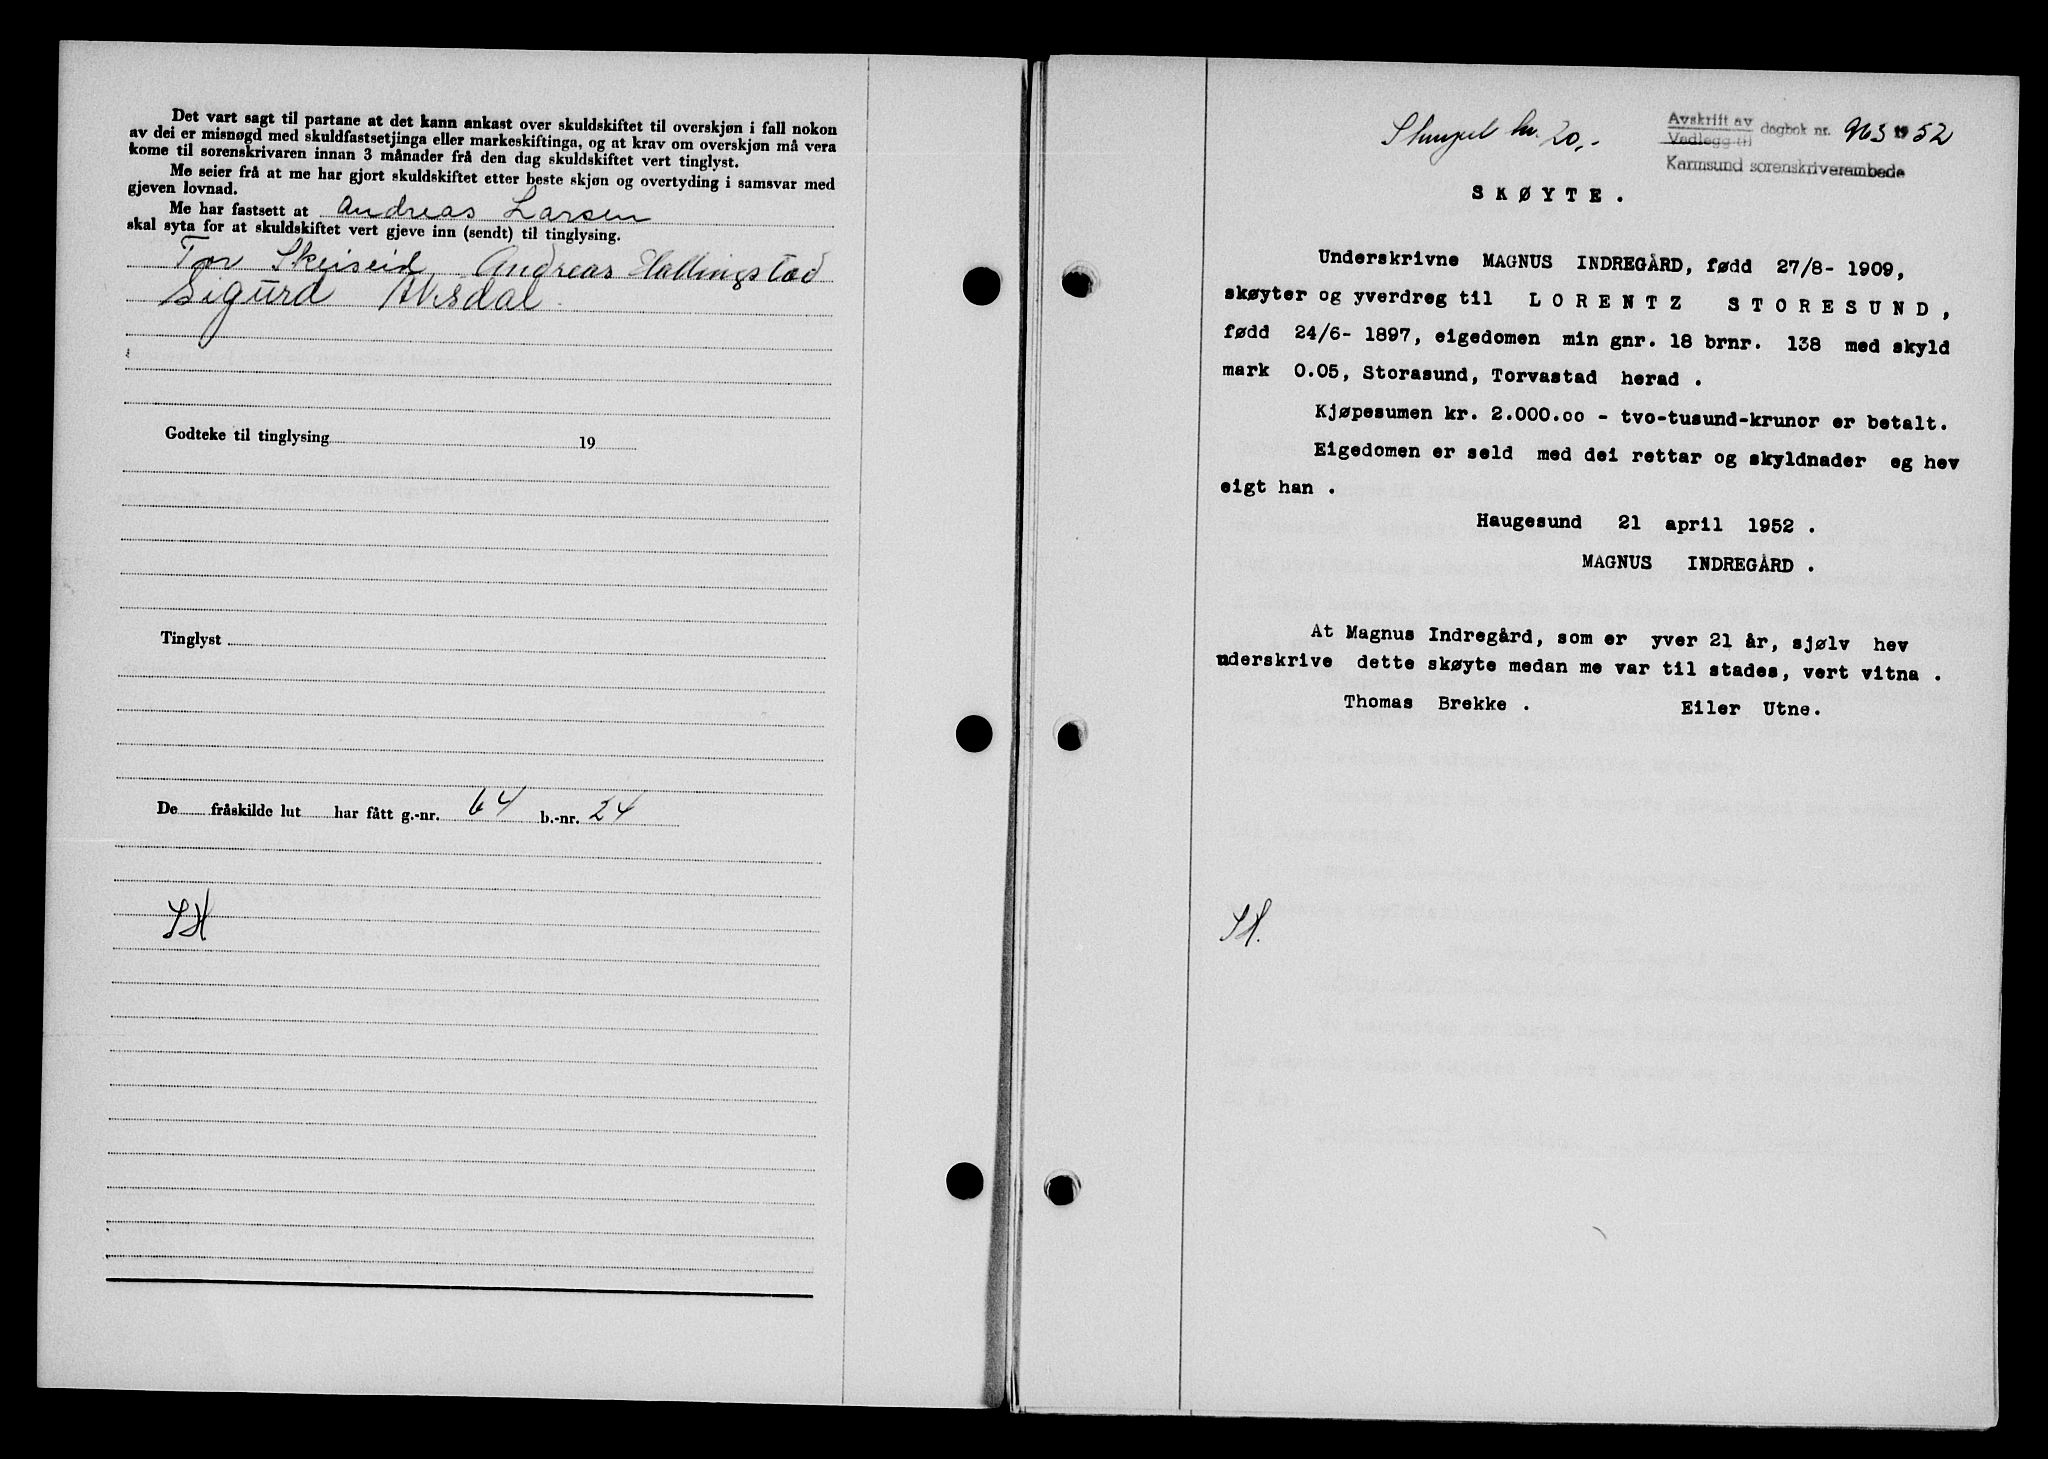 Det vart sagt til partane at det kann ankast over skuldskiftet til overskjøn i fall nokon
av dei er misnøgd med skuldfastsetjinga eller markeskiftinga, og at krav om overskjøn må vera
kome til sorenskrivaren innan 3 månader frå den dag skuldskiftet vert tinglyst.
Me seier frå at me har gjort skuldskiftet etter beste skjøn og overtyding i samsvar med
gjeven lovnad.
Me har fastsett at Andreas Larsen
skal syta for at skuldskiftet vert gjeve inn (sendt) til tinglysing.
Tor Skeiseid Andreas Hallingstad
Sigurd Aksdal
Godteke til tinglysing 19
Tinglyst
De fråskilde lut har fått g.-nr. 64 b.-nr. 24
SH
Stempel kr. 20,-
Avskrift av
Vedlegg til dagbok nr. 963 1952
Karmsund sorenskriverembede
SKØYTE.
Underskrivne MAGNUS INDREGÅRD, fødd 27/8- 1909,
skøyter og yverdreg til LORENTZ STORESUND,
fødd 24/6- 1897, eigedomen min gnr. 18 brnr. 138 med skyld
mark 0.05, Storasund, Torvastad herad .
Kjøpesumen kr. 2.000.oo - tvo-tusund-krunor er betalt.
Eigedomen er seld med dei rettar og skyldnader eg hev
eigt han .
Haugesund 21 april 1952 .
MAGNUS INDREGÅRD .
At Magnus Indregård, som er yver 21 år, sjølv hev
underskrive dette skøyte medan me var til stades, vert vitna .
Thomas Brekke . Eiler Utne.
SH.